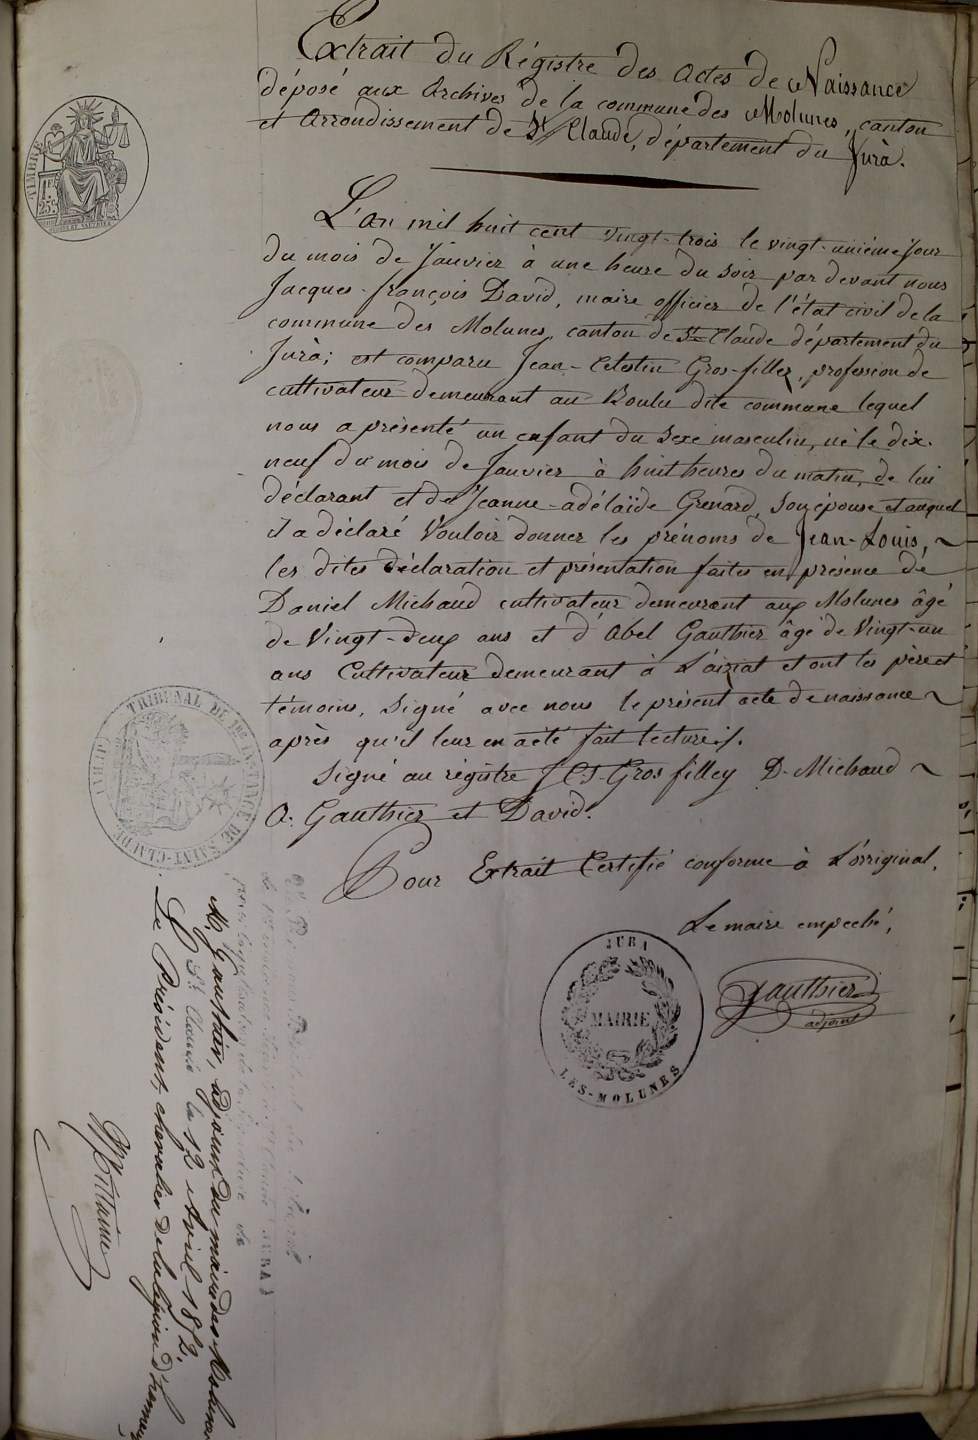 Extrait du Régistre des actes de Naissance
déposé aux Archives de la commune des Molunes, canton
et Arrondissement de St Claude, département du Jurà.
TIMBRE
L'an mil huit cent vingt-trois le vingt-unième jour
du mois de Janvier à une heure du soir par devant nous
Jacques-françois David, maire officier de l'état civil de la
commune des Molunes, canton de St Claude département du
Jurà; est comparu Jean-Célestin Gros-filley, profession de
cultivateur demeurant au Boulu dite commune lequel
nous a présenté un enfant du sexe masculin, né le dix-
neuf du mois de Janvier à huit heures du matin, de lui
déclarant et de Jeanne-adélaïde Grenard, son épouse et auquel
il a déclaré Vouloir donner les prénoms de Jean-Louis, ~
les dites déclaration et présentation faites en présence de
Daniel Michaud cultivateur demeurant aux Molunes âgé
de Vingt-deux ans et d'Abel Gauthier âgé de Vingt-un
ans Cultivateur demeurant à L'aiziat et ont les père et
témoins, Signé avec nous le présent acte de naissance ~
après qu'il leur en a été fait lecture./.
Signé au régistre J. C. Gros filley D. Michaud ~
A. Gauthier et David.
Pour Extrait Certifié conforme à L'orriginal.
Le maire empeché,
Gauthier
adjoint
JURA
MAIRIE
LES-MOLUNES
TRIBUNAL DE 1re INSTANCE DE SAINT-CLAUDE
(JURA)
(JURA)
M. Gauthier, adjoint du maire des Molunes
St Claude le 12 Avril 1872.
Le Président, chevalier de la légion d'honneur